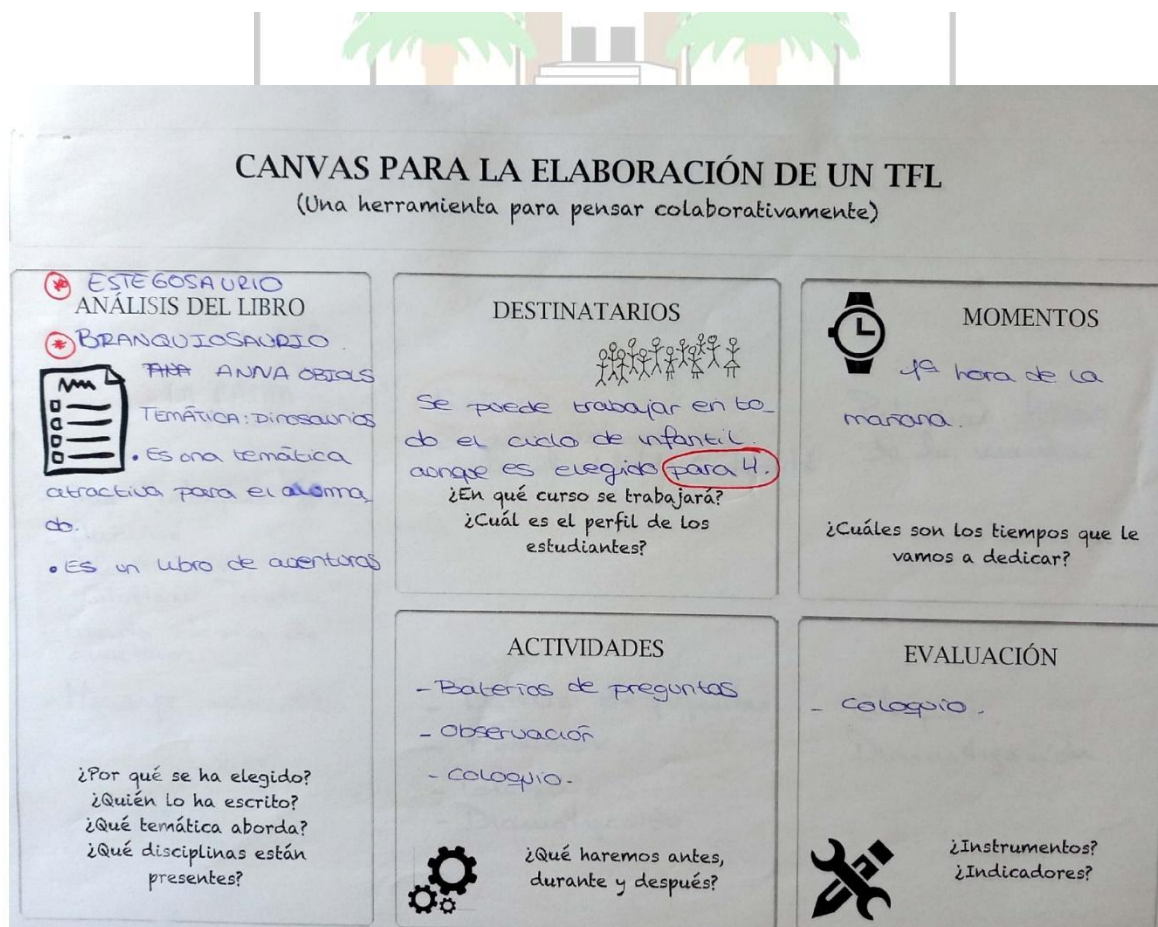 CANVAS PARA LA ELABORACIÓN DE UN TFL
(Una herramienta para pensar colaborativamente)
ESTEGOSAURIO
ANÁLISIS DEL LIBRO
BRANQUIOSAURIO.
ANNA OBIOLS
TEMÁTICA: Dinosaurios
• Es una temática
atractiva para el alumna
do.
• Es un libro de aventuras
¿Por qué se ha elegido?
¿Quién lo ha escrito?
¿Qué temática aborda?
¿Qué disciplinas están
presentes?
DESTINATARIOS
Se puede trabajar en to_
do el ciclo de infantil.
aunque es elegido para 4.
¿En qué curso se trabajará?
¿Cuál es el perfil de los
estudiantes?
MOMENTOS
1ª hora de la
mañana.
¿Cuáles son los tiempos que le
vamos a dedicar?
ACTIVIDADES
- Baterias de preguntas
- Observación
- coloquio.
¿Qué haremos antes,
durante y después?
EVALUACIÓN
- coloquio.
¿Instrumentos?
¿Indicadores?